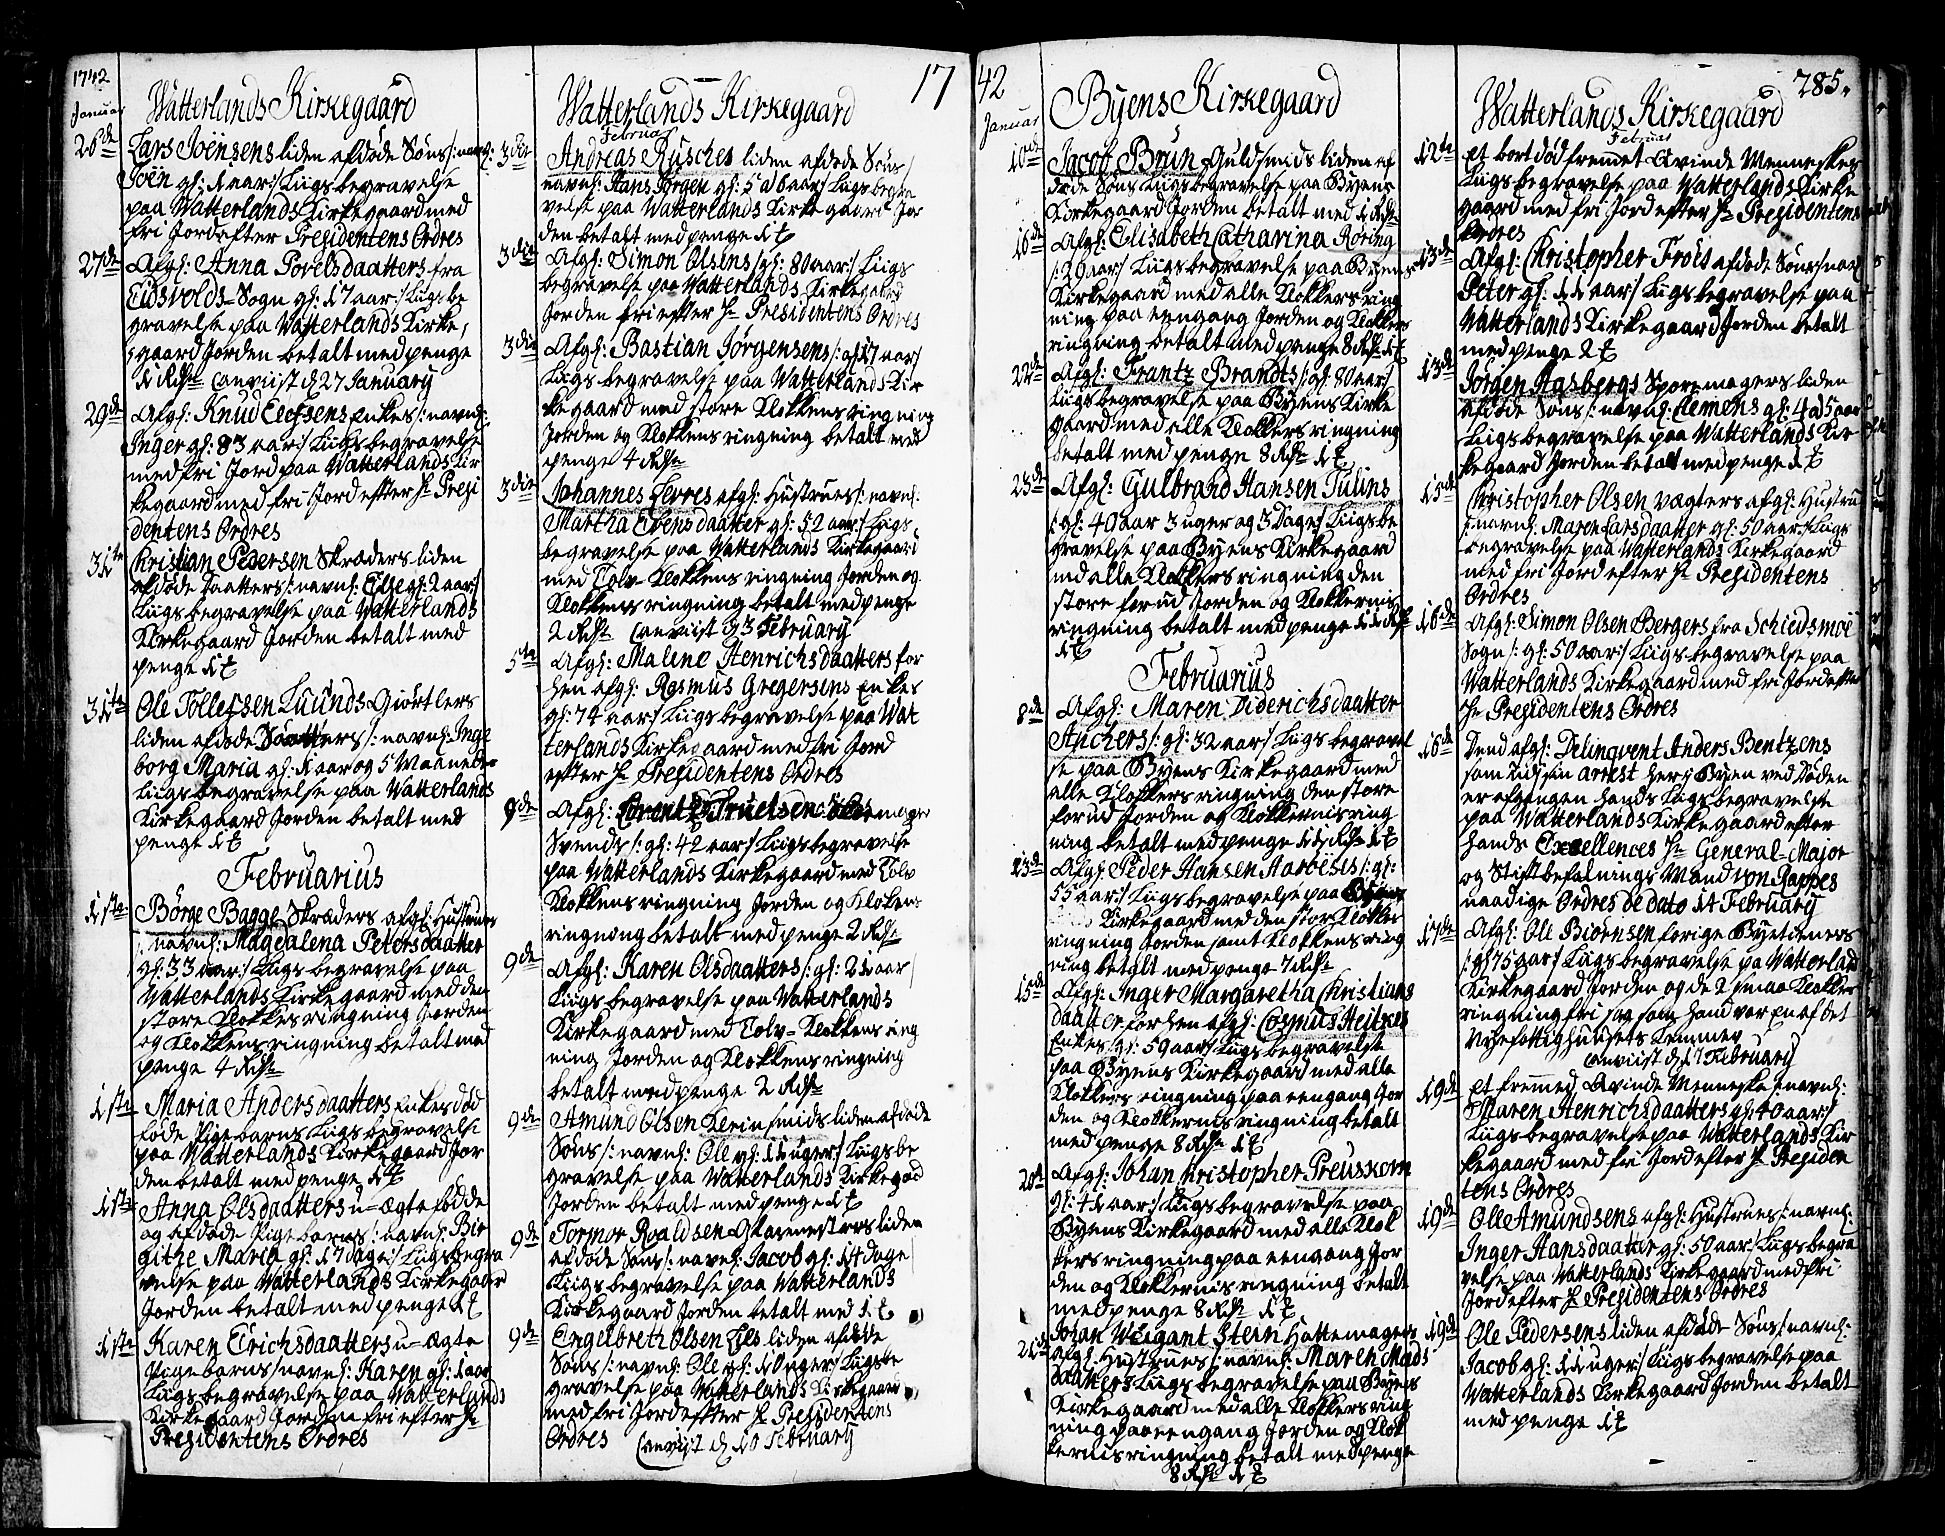 1742
Januar
Watterlands Kirkegaard
26de Lars Joensens liden afdøde Søns /: navnl:
Joen gl: 1 aar:/ Liigs begravelse
paa Watterlands Kirkegaard med
fri Jord efter Presidentens Ordres
27de Afgl: Anna Povelsdaatters fra
Eidsvolds Sogn gl: 17 aar:/ Liigs be
gravelse paa Watterlands Kirke,
gaard Jorden betalt med penge
1 Rdr Canviist d 27 January
29de Afgl: Knud Elefsens Enkes /: navnl:
Inger gl: 83 aar:/ Liigs begravelse
med fri Jord paa Watterlands Kir
kegaard med fri Jord efter Hr Presi
dentens Ordres
31te Christian Pedersen Skræders liden
afdøde Daatters /: navnl: Else gl: 2 aar:/
Liigs begravelse paa Watterlands
Kirkegaard Jorden betalt med
penge 1 ţ
31te Ole Tollefsen Luunds Giørtlers
liden afdøde Daatters /: navnl: Inge
borg Maria gl: 1 aar og 5 Maaneder
Liigs begravelse paa Watterlands
Kirkegaard Jorden betalt med
penge 1 ţ
Februarius
1ste Børge Bagge Skræders afgl: Hustrues
/: navnl: Magdalena Petersdaatter
gl: 33 aar:/ Liigs begravelse paa
Watterlands Kirkegaard med den
store Klokkes ringning Jorden
og Klokkens ringning betalt med
penge 4 Rdr
1ste Maria Andersdaatters Enkes død
føde Pigebarns Liigs begravelse
paa Watterlands Kirkegaard Jor
den betalt med penge 1 ţ
1ste Anna Olsdaatters u-ægte fødde
og afdøde Pige barns /: navnl: Bir
githe Maria gl: 17 dage:/ Liigs begra
velse paa Watterlands Kirkegaard
Jorden betalt med penge 1 ţ
1ste Karen Erichsdaatters u-ægte
Pige barns /: navnl: Karen gl: 1 aar
Liigs begravelse paa Watterlands
Kirkegaard Jorden fri efter Hr
Presidentens Ordres
17
Watterlands Kirkegaard
Februar
3die Andreas Rusches liden afdøde Søns /
navnl: Hans Jørgen gl: 5 a 6 aar:/ Liigs begra
velse paa Watterlands Kirkegaard Jor
den betalt med penge 1 ţ
3die Afgl: Simon Olsens /gl: 80 aar:/ Liigs
begravelse paa Watterlands Kirkegaard
Jorden fri efter Hr Presidentens Ordres
3die Afgl: Bastian Jørgensens /: gl: 17 aar/
Liigs begravelse paa Watterlands Kir
kegaard med store Klokkens ringning
Jorden og Klokkens ringning betalt med
penge 4 Rdr
3die Johannes Levres afgl: Hustrues /: navnl:
Martha Evensdaatter gl: 52 aar:/ Liigs
begravelse paa Watterlands Kirkegaard
med Tolv Klokkens ringning Jorden og
Klokkens ringning betalt med penge
2 Rdr Canviist d 3 February
5te Afgl: Malene Henrichsdaatters for
hen afgl: Rasmus Gregersens Enkes
gl: 74 aar:/ Liigs begravelse paa Wat
terlands Kirkegaard med fri Jord
efter Hr Presidentens Ordres
9de Afgl: Lorentz Truelsen
Svends /: gl: 42 aar:/ Liigs begravelse
paa Watterlands Kirkegaard med Tolv
Klokkens ringning Jorden og Klokkens
ringning betalt med penge 2 Rdr
9de Afgl: Karen Olsdaatters /: gl: 21 aar/
Liigs begravelse paa Watterlands
Kirkegaard med Tolv-Klokkens ring
ning Jorden og Klokkens ringning
betalt med penge 2 Rdr
9de Amund Olsen Kleinsmids liden afdøde
Søns /: navnl: Ole gl: 11 uger:/ Liigs be
gravelse paa Watterlands Kirkegaard
Jorden betalt med penge 1 ţ
9de Tormor Roaldsen Glasmesters liden
afdøde Søns /: navnl: Jacob gl: 14 dage/
Liigs begravelse paa Watterlands
Kirkegaard Jorden betalt med 1 ţ
9de Engelbreth Olsen Lies liden afdøde
Søns /: navnl: Ole gl: 10 uger:/ Liigs be
gravelse paa Watterlands Kirkegaard
med fri Jord efter Hr Presidentens
Ordres Canviist d 10 February
42
Januar
Byens Kirkegaard
10de Jacob Brun Guldsmids liden af
døde Søns Liigs begravelse paa Byens
Kirkegaard Jorden betalt med 1 Rdr
16de Afgl: Elisabeth Catharina Røring
/: 20 aar:/ Liigs begravelse paa Byens
Kirkegaard med alle Klokkers ring
ning paa eengang Jorden og Klokkers
ringning betalt med penge 8 Rdr 1 ţ
22de Afgl: Frantz Brandts /: gl: 80 aar:/
Liigs begravelse paa Byens Kirke
gaard med alle Klokkers ringning
betalt med penge 8 Rdr 1 ţ
23de Afgl: Gulbrand Hansen Tulins
/: gl: 40 aar 3 uger og 3 Dage:/ Liigs be
gravelse paa Byens Kirkegaard
med alle Klokkers ringning den
store forud Jorden og Klokkernis
ringning betalt med penge 11 Rdr
1 ţ
Februarius
8de Afgl: Maren Diderichsdaatter
Anchers /: gl: 32 aar:/ Liigs begravel
se paa Byens Kirkegaard med
alle Klokkers ringning den store
forud Jorden og Klokkernis ring
ning betalt med penge 11 Rdr 1 ţ
13de Afgl: Peder Hansen Aarbeses /: gl:
55 aar:/ Liigs begravelse paa Byens
Kirkegaard med den store Klokkes
ringning Jorden samt Klokkens ring
ning betalt med penge 7 Rdr
15de Afgl: Inger Margaretha Christians
daatter forhen afgl: Cosmus Heitzes
Enkes /: gl: 59 aar:/ Liigs begravelse
paa Byens Kirkegaard med alle
Klokkers ringning paa eengang Jor
den og Klokkernis ringning betalt
med penge 8 Rdr 1 ţ
20de Afgl: Johan Christopher Preuskorn
gl: 41 aar:/ Liigs begravelse paa
Byens Kirkegaard med alle Klok
kers ringning paa eengang Jor
den og Klokkernis ringning betalt
med penge 8 Rdr 1 ţ
21de Johan Weigant Stern Hattemagers
afgl: Hustrues /: navnl: Maren Mads
daatters Liigs begravelse paa Byens
Kirkegaard med alle Klokkers ring
ning paa eengang Jorden og Klok
kernis ringning betalt med penge
8 Rdr 1 ţ
785.
Watterlands Kirkegaard
Februar
12te Et bort død fremmet Qvinde Menneskes
Liigs begravelse paa Watterlands Kirke
gaard med fri Jord efter Hr Presidentens
Ordres
13de Afgl: Christopher Frøis afdøde Søns /: navl
Peter gl: 11 aar/ Liigs begravelse paa
Watterlands Kirkegaard Jorden betalt
med penge 2 ţ
13de Jørgen Aasbergs Sporemagers liden
afdøde Søns /: navnl: Clemens gl: 4 a 5 aar
Liigs begravelse paa Watterlands Kir
kegaard Jorden betalt med penge 1 ţ
15de Christopher Olsen Vægters afgl: Hustru
/: navnl: Maren Larsdaatter gl: 50 aar:/ Liigs
begravelse paa Watterlands Kirkegaard
med fri Jord efter Hr Presidentens
Ordres
16de Afgl: Simon Olsen Bergers fra Schiedsmoe
Sogn /: gl: 50 aar:/ Liigs begravelse paa
Watterlands Kirkegaard med fri Jord efter
Hr Presidentens Ordres
16de Dend afgl: Delinqvent Anders Bentzens
som udi sin arrest her i Byen ved Døden
er afgangen hands Liigs begravelse
paa Watterlands Kirkegaard efter
hands Excellences Hr General-Major
og Stiftbefalnings Mand von Rappes
naadige Ordres de dato 14 February
17de Afgl: Ole Biørnsen forige Byetieners
/: gl: 75 aar:/ Liigs begravelse pa Watterland
Kirkegaard Jorden og de 2 smaa Klokkers
ringning fri saa som hand var En af det
Nye fattighuusets Lemmer
Canviist d 17 February
19de Et fremmed Qvinde Menneske navnl:
Maren Henrichsdaatters gl: 40 aar:/
Liigs begravelse paa Watterlands Kir
kegaard med fri Jord efter Hr Presiden
tens Ordres
19de Olle Amundsens afgl: Hustrues /: navnl:
Inger Hansdaatter gl: 50 aar:/ Liigs begra
velse paa Watterlands Kirkegaard med fri
Jord efter Hr Presidentens Ordres
19de Ole Pedersens liden afdøde Søns /: navnl:
Jacob gl: 11 uger:/ Liigs begravelse paa
Watterlands Kirkegaard Jorden betalt
med penge 1 ţ